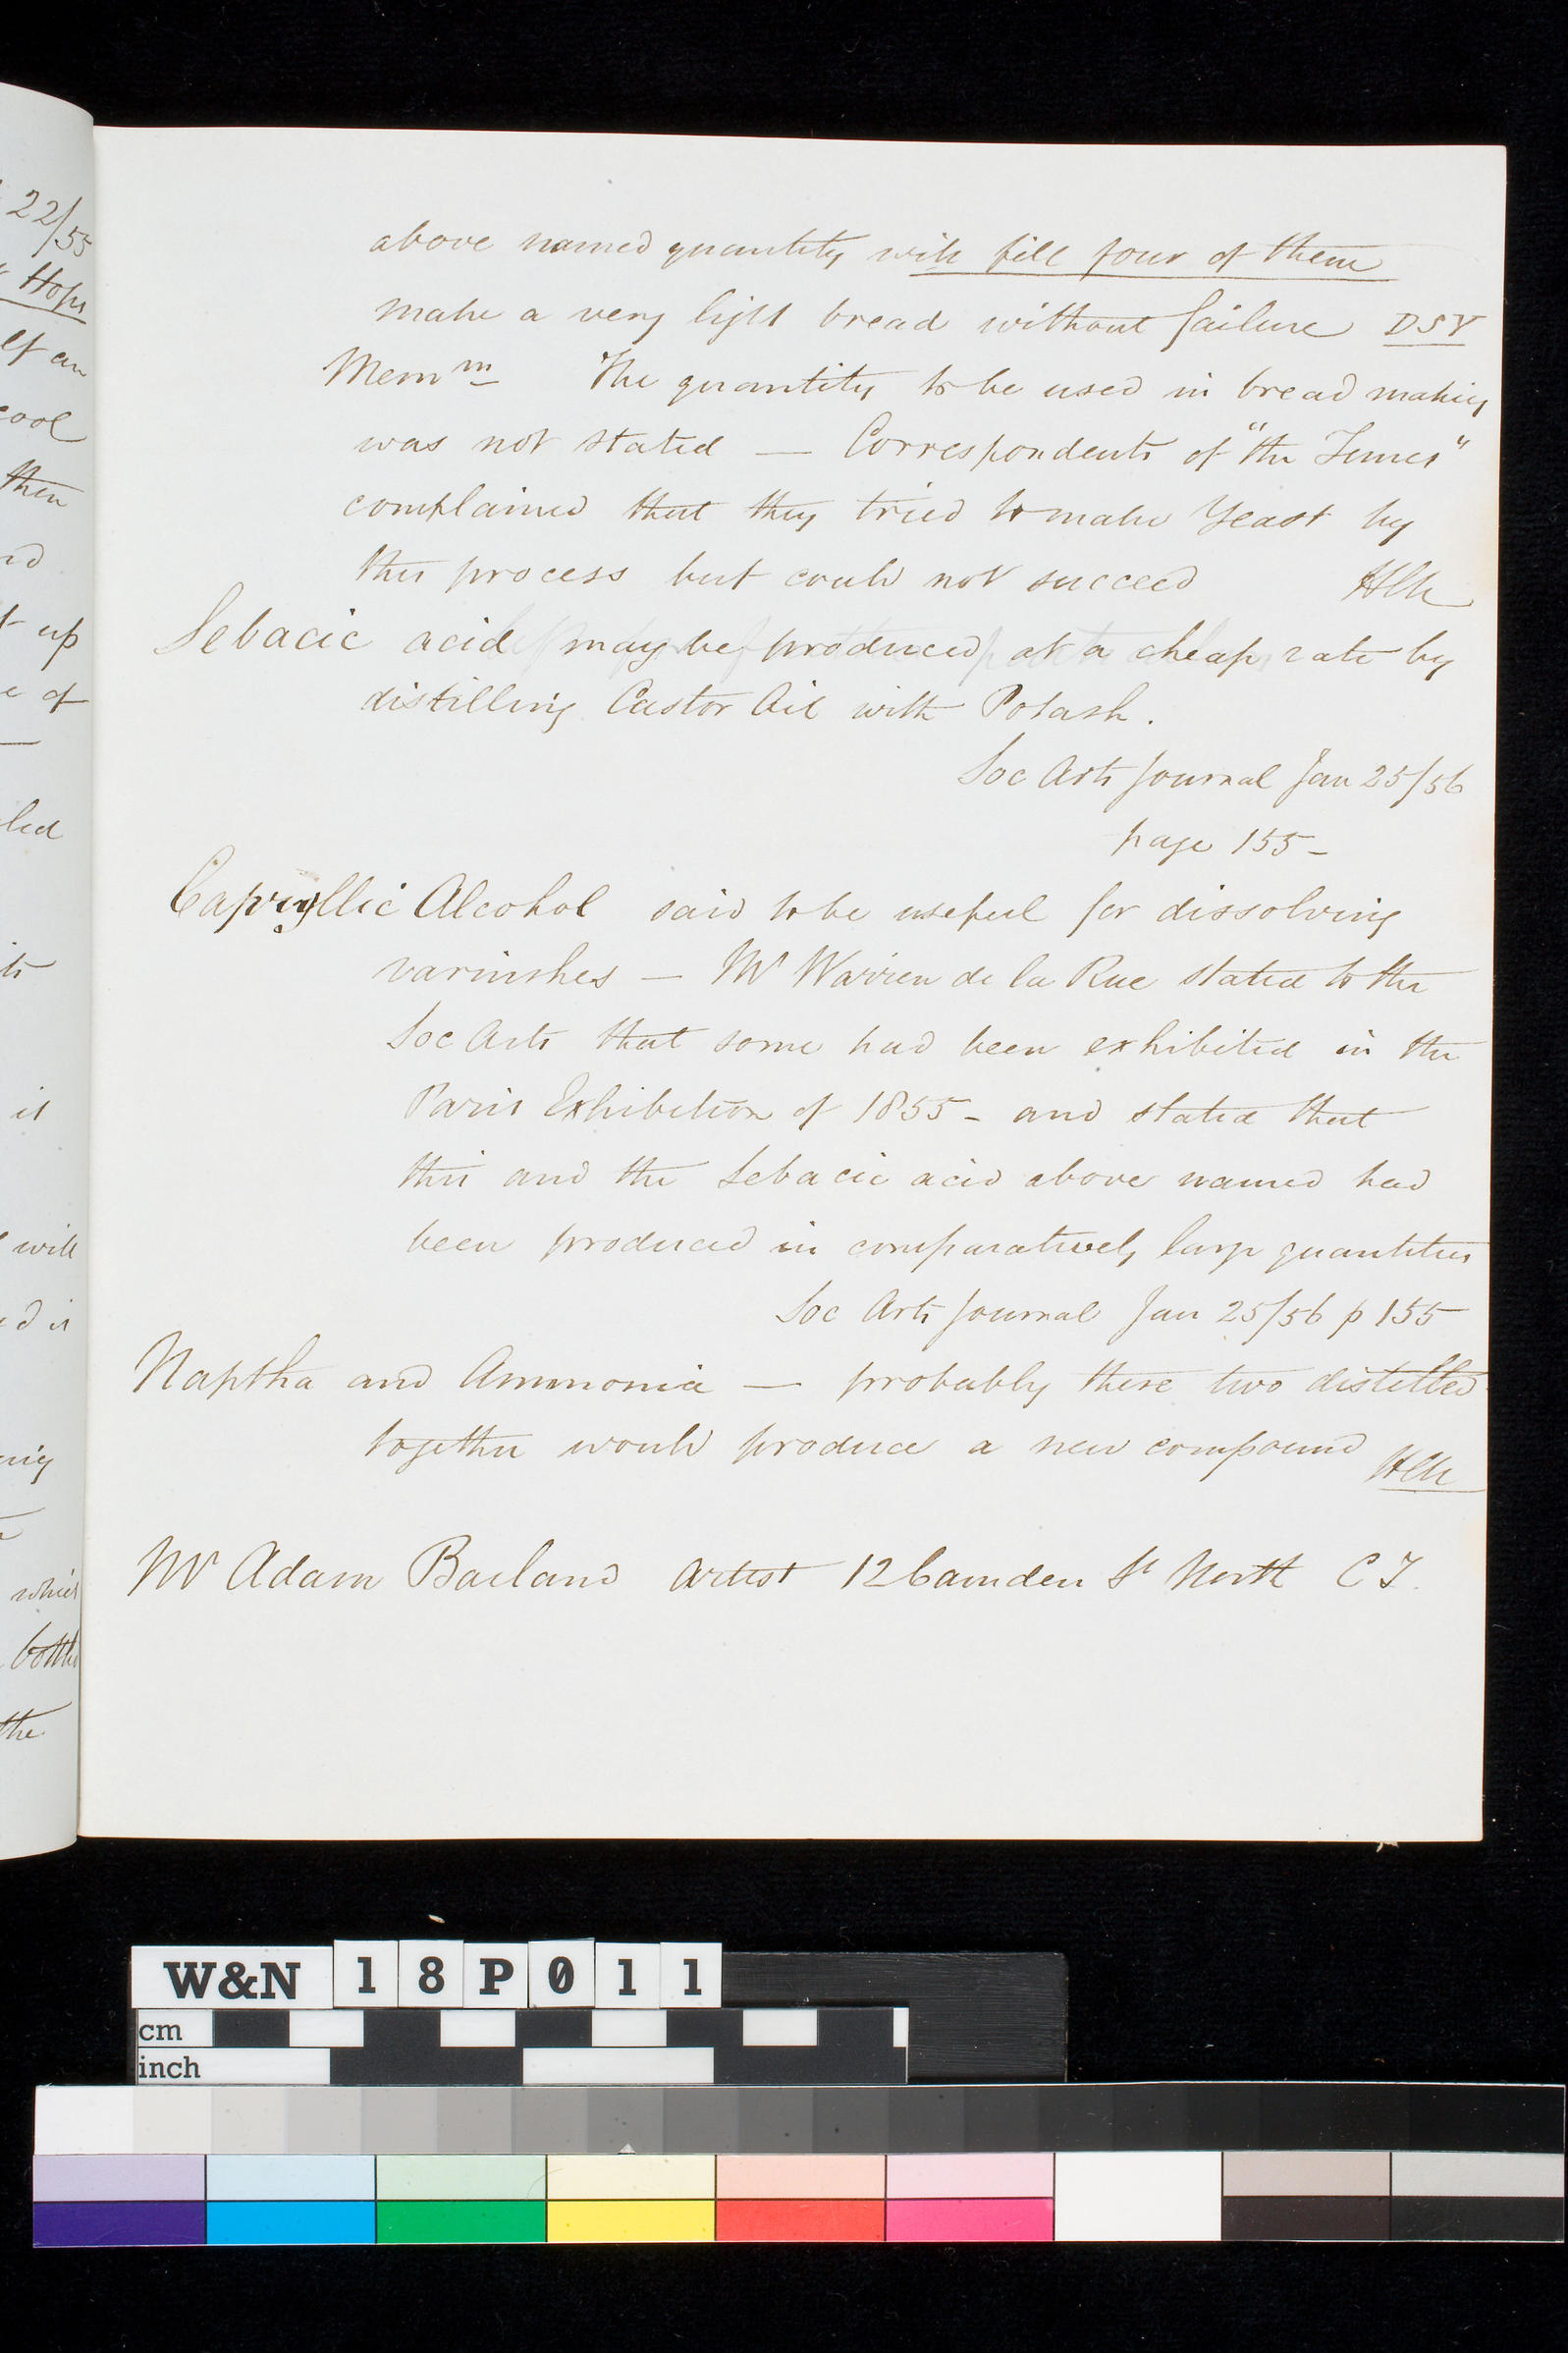 22/55
Hops
lf an
cool
then
nd
t up
e of
led
its
it
will
ed is
ing
which
bottles
the
above named quantity will fill four of them
make a very light bread without failure DSY
Memm The quantity to be used in bread making
was not stated — Correspondents of "the Times"
complained that they tried to make Yeast by
this process but could not succeed HCN
Sebacic acid may be produced at a cheap rate by
distilling Castor Oil with Potash.
Soc Arts Journal Jan 25/56
page 155 -
Capryllic Alcohol said to be useful for dissolving
varnishes — Mr Warren de la Rue stated to the
Soc Arts that some had been exhibited in the
Paris Exhibition of 1855 - and stated that
this and the Sebacic acid above named had
been produced in comparatively large quantities
Soc Arts Journal Jan 25/56 p 155
Naptha and Ammonia — probably these two distilled
together would produce a new compound HCN
Mr Adam Barland Artist 12 Camden St North C T.
W&N 18P011
cm
inch